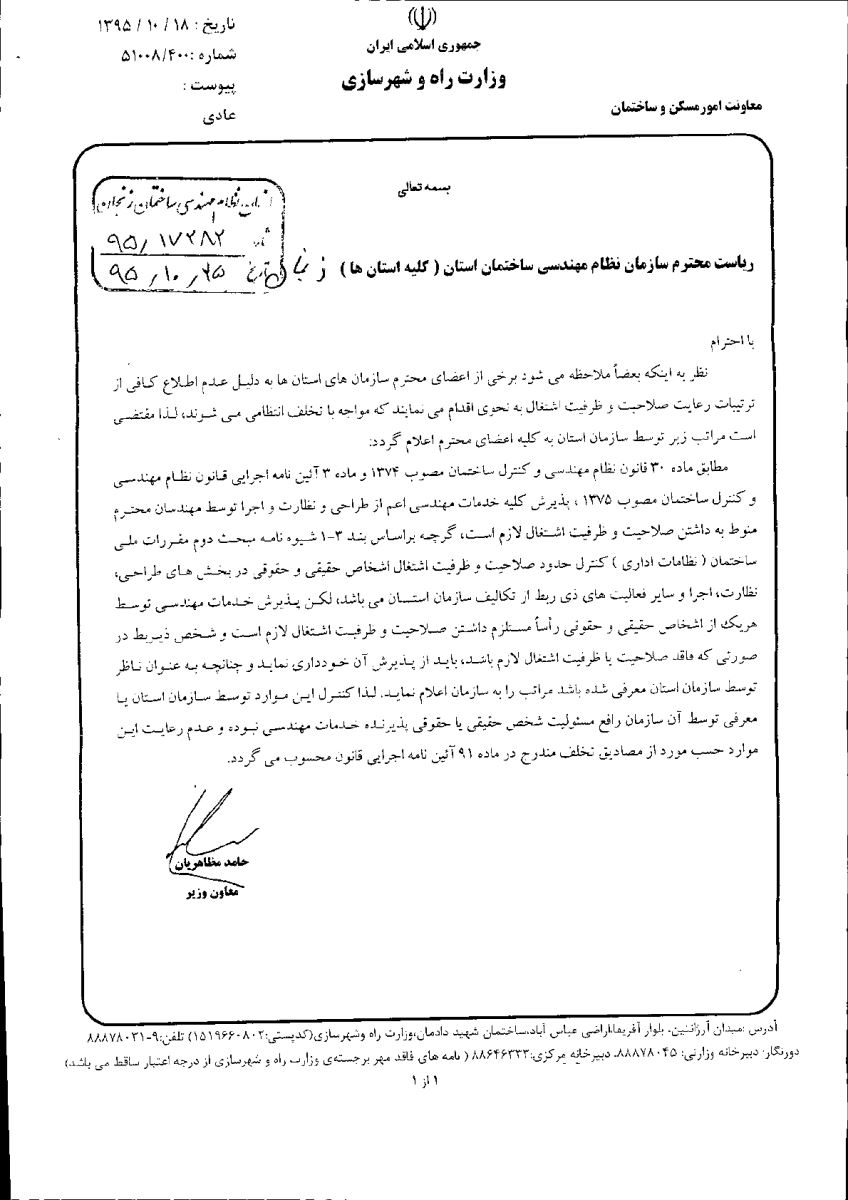 تاریخ : ۱۸ / ۱۰ / ۱۳۹۵
شماره :۵۱۰۰۸/۴۰۰
پیوست :
عادی
جمهوری اسلامی ایران
وزارت راه و شهرسازی
معاونت امور مسکن و ساختمان
بسمه تعالی
سازمان نظام مهندسی ساختمان زنجان
۹۵/۱۷۲۸۲
تاریخ ۹۵/۱۰/۲۵
ریاست محترم سازمان نظام مهندسی ساختمان استان ( کلیه استان ها ) زنجان
با احترام
نظر به اینکه بعضاً ملاحظه می شود برخی از اعضای محترم سازمان های استان ها به دلیل عدم اطلاع کافی از
ترتیبات رعایت صلاحیت و ظرفیت اشتغال به نحوی اقدام می نمایند که مواجه با تخلف انتظامی می شوند، لذا مقتضی
است مراتب زیر توسط سازمان استان به کلیه اعضای محترم اعلام گردد:
مطابق ماده ۳۰ قانون نظام مهندسی و کنترل ساختمان مصوب ۱۳۷۴ و ماده ۳ آئین نامه اجرایی قانون نظام مهندسی
و کنترل ساختمان مصوب ۱۳۷۵ ، پذیرش کلیه خدمات مهندسی اعم از طراحی و نظارت و اجرا توسط مهندسان محترم
منوط به داشتن صلاحیت و ظرفیت اشتغال لازم است، گرچه براساس بند ۳-۱ شیوه نامه مبحث دوم مقررات ملی
ساختمان ( نظامات اداری ) کنترل حدود صلاحیت و ظرفیت اشتغال اشخاص حقیقی و حقوقی در بخش های طراحی،
نظارت، اجرا و سایر فعالیت های ذی ربط از تکالیف سازمان استان می باشد، لکن پذیرش خدمات مهندسی توسط
هریک از اشخاص حقیقی و حقوقی رأساً مستلزم داشتن صلاحیت و ظرفیت اشتغال لازم است و شخص ذیربط در
صورتی که فاقد صلاحیت یا ظرفیت اشتغال لازم باشد، باید از پذیرش آن خودداری نماید و چنانچه به عنوان ناظر
توسط سازمان استان معرفی شده باشد مراتب را به سازمان اعلام نماید. لذا کنترل این موارد توسط سازمان استان یا
معرفی توسط آن سازمان رافع مسئولیت شخص حقیقی یا حقوقی پذیرنده خدمات مهندسی نبوده و عدم رعایت این
موارد حسب مورد از مصادیق تخلف مندرج در ماده ۹۱ آئین نامه اجرایی قانون محسوب می گردد.
حامد مظاهریان
معاون وزیر
آدرس :میدان آرژانتین، بلوار آفریقا،اراضی عباس آباد،ساختمان شهید دادمان،وزارت راه وشهرسازی(کدپستی:۱۵۱۹۶۶۰۸۰۲) تلفن:۹-۸۸۸۷۸۰۳۱
دورنگار: دبیرخانه وزارتی: ۸۸۸۷۸۰۴۵، دبیرخانه مرکزی:۸۸۶۴۶۳۳۳ ( نامه های فاقد مهر برجسته‌ی وزارت راه و شهرسازی از درجه اعتبار ساقط می باشد)
۱ از ۱